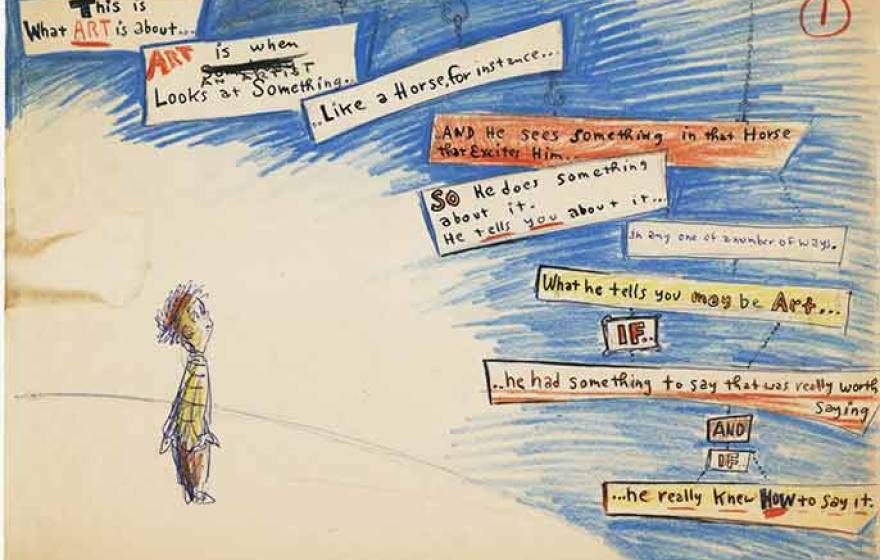 This is
What ART is about...
1
ART is when
AN ARTIST
Looks at Something..
..Like a Horse, for instance...
AND He sees something in that Horse
that Excites Him..
SO He does something
about it.
He tells you about it...
In any one of a number of ways.
What he tells you may be Art...
IF..
..he had something to say that was really worth
saying
AND
IF..
...he really knew HOW to say it.